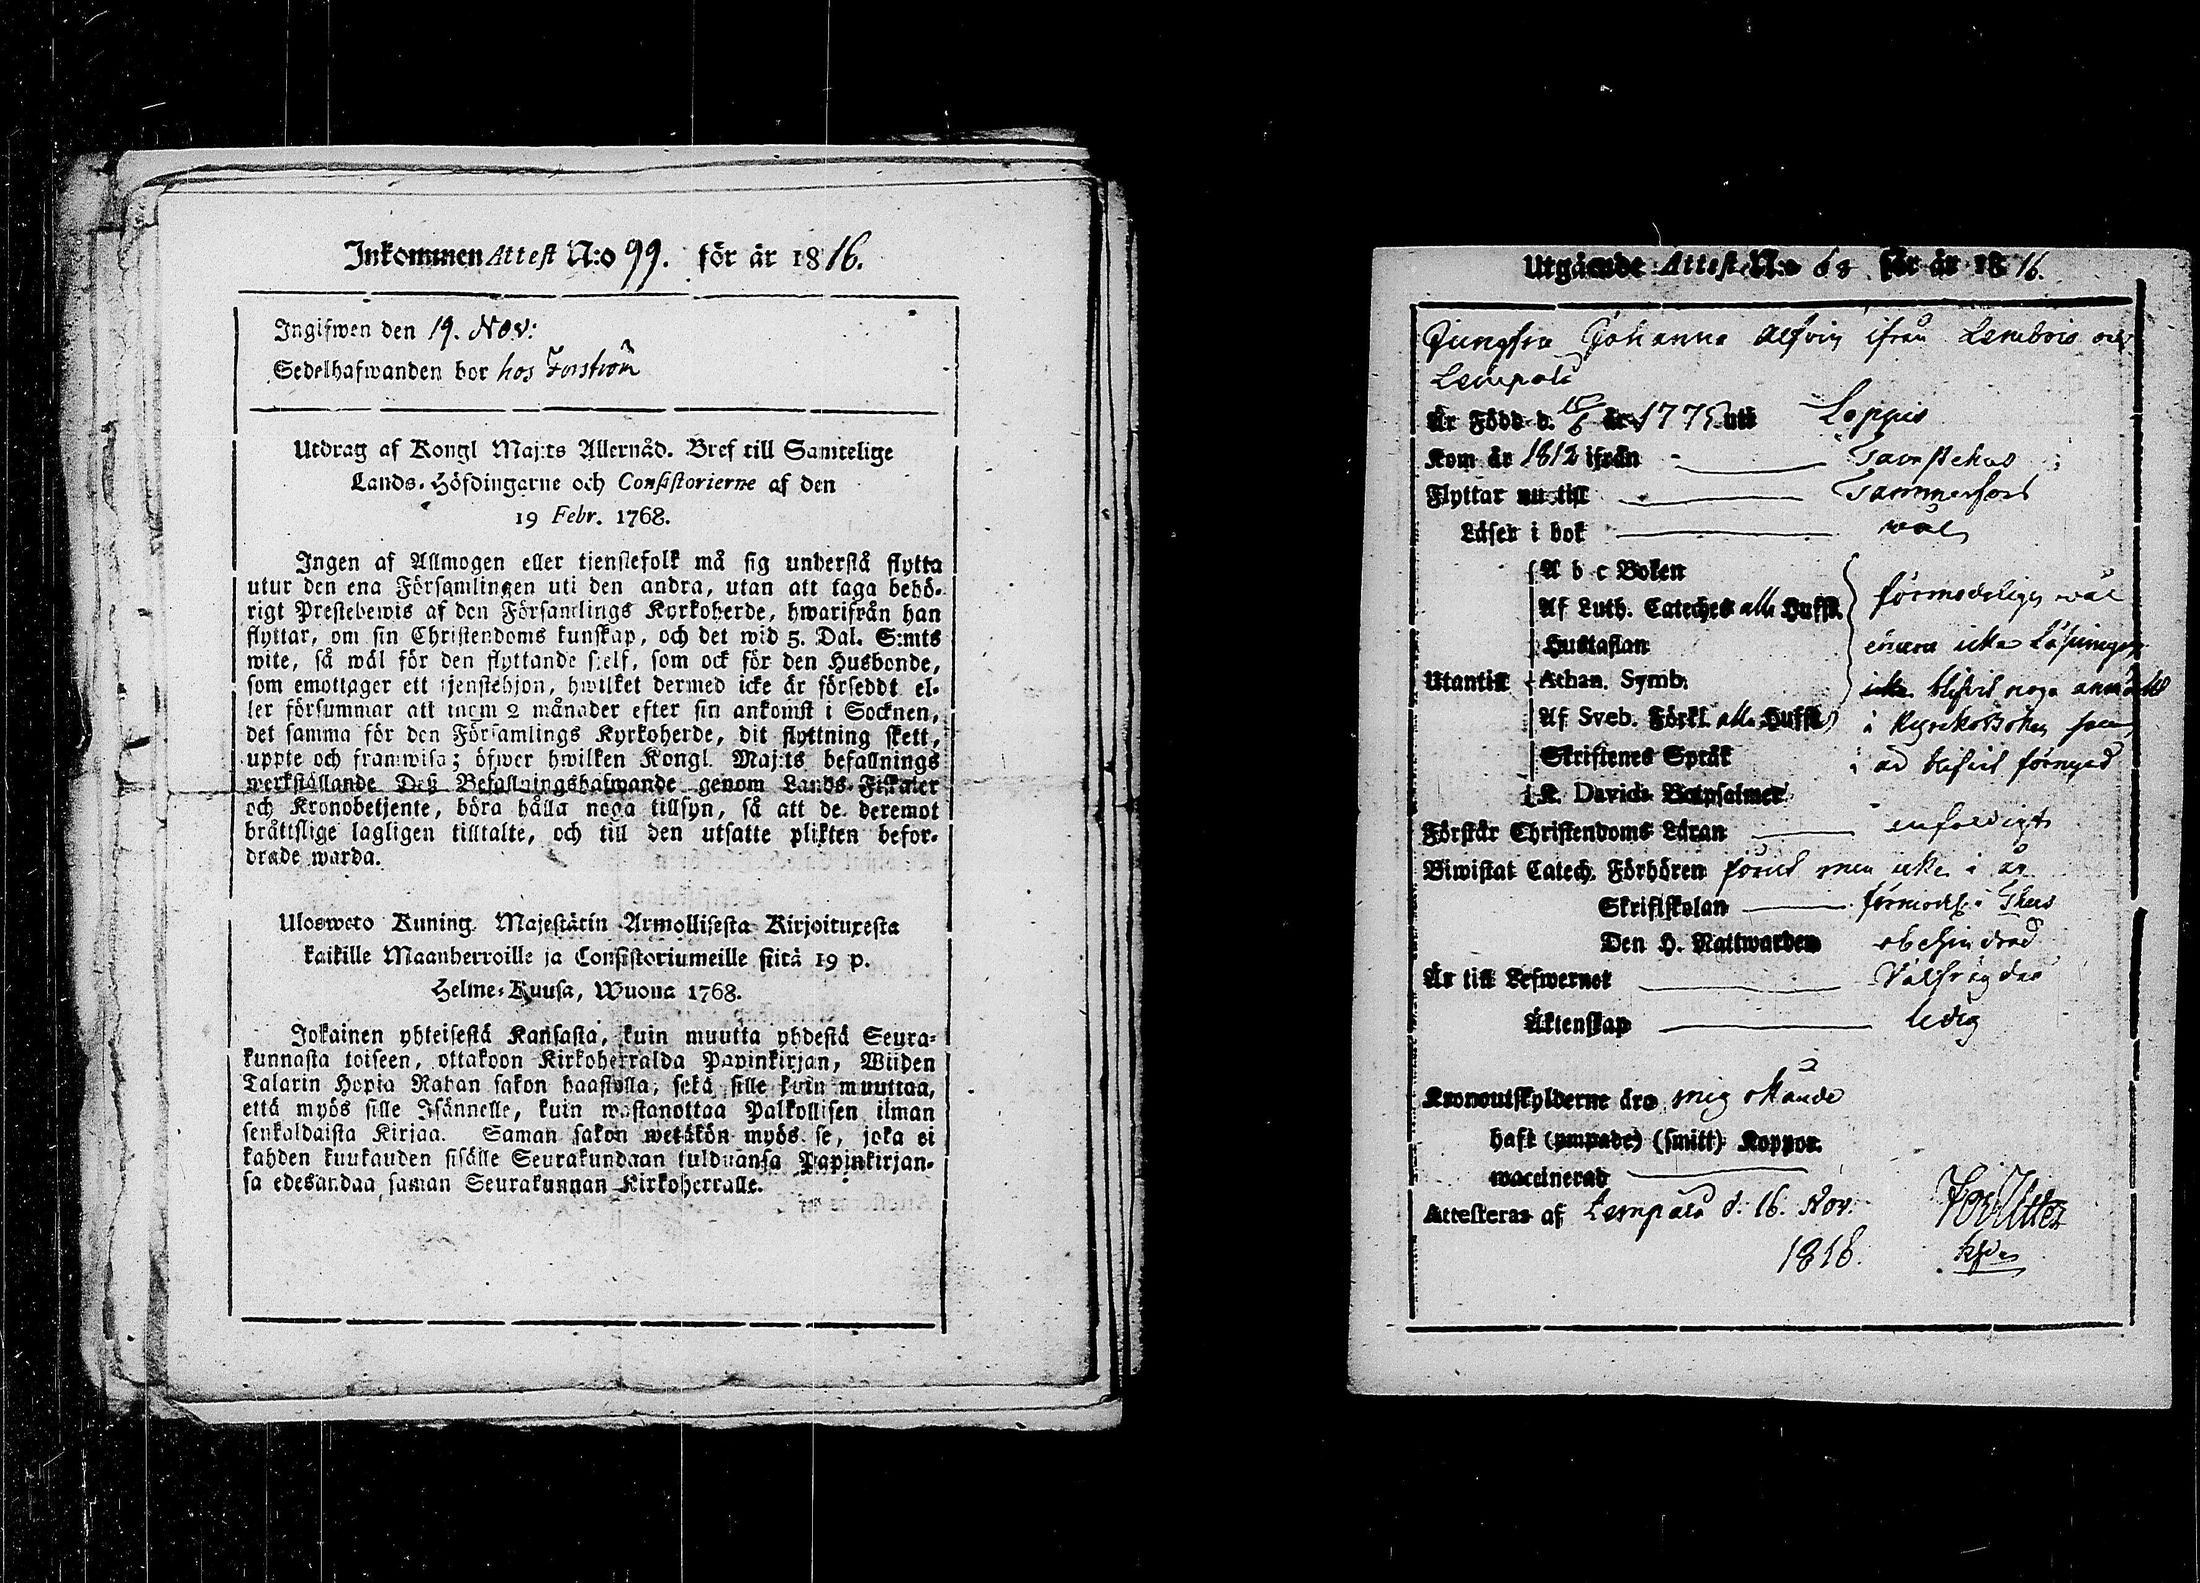 Inkommen Attest N:o 99. för år 1816.
Ingifwen den 19. Nov:
Sedelhafwanden bor hos Forström
Utdrag af Kongl Maj:ts Allernåd. Bref till Samtelige
Lands-Höfdingarne och Consistorierne af den
19 Febr. 1768.
Ingen af Allmogen eller tjenstefolk må sig understå flytta
utur den ena Församlingen uti den andra, utan att taga behö-
rigt Prestebewis af den Församlings Kyrkoherde, hwarifrån han
flyttar, om sin Christendoms kunskap, och det wid 5. Dal. S:mts
wite, så wäl för den flyttande sjelf, som ock för den Husbonde,
som emottager ett tjenstehjon, hwilket dermed icke är försedt el-
ler försummar att inom 2 månader efter sin ankomst i Socknen,
det samma för den Församlings Kyrkoherde, dit flyttning skett,
uppte och framwisa; öfwer hwilken Kongl. Maj:ts befallnings
werkställande Deß Befallningshafwande genom Lands-Fiskaler
och Kronobetjente, böra hålla noga tillsyn, så att de deremot
bråttslige lagligen tilltalte, och till den utsatte plikten befor-
drade warda.
Ulosweto Kuning. Majestätin Armollisesta Kirjoituxesta
kaikille Maanherroille ja Consistoriumeille siitä 19 p.
Helme-Kuusa, Wuona 1768.
Jokainen yhteisestä Kansasta, kuin muutta yhdestä Seura-
kunnasta toiseen, ottakoon Kirkoherralda Papinkirjan, Wiiden
Talarin Hopia Rahan sakon haastolla, sekä sille kuin muuttaa,
että myös sille Isännelle, kuin wastanottaa Palkollisen ilman
senkaldaista Kirjaa. Saman sakon wetäkön myös se, joka ei
kahden kuukauden sisälle Seurakundaan tulduansa Papinkirjan-
sa edesandaa saman Seurakunnan Kirkoherralle.
Utgående Attest N:o 68 för år 1816.
Jungfru Johanna ifrån Lembois och
Lempälä
Är Född d. år 1775 uti Loppis
Kom år 1812 ifrån Tavastehus
Flyttar nu till Tammerfors
Läser i bok wäl
A b c Boken
Af Luth. Cateches alla Hufst. förmodeligen wäl
Hustaflan emedan icke Läsningen
Utantill Athan. Symb. icke blifvit noga
Af Sveb. Förkl. alla Hufst. i Kyrkoboken som
Skriftenes Språk blifvit förnyad
K. Davids Botpsalmer
Förstår Christendoms Läran enfaldigt
Biwistat Catech. Förhören förut men icke i år
Skriftskolan
Den H. Nattwarden obehindrad
Är till Lefwernet Välfrägdad
Äktenskap ledig
Kronoutskylderne äro mig okände
haft (ympade) (smitt) Koppor.
waccinerad
Attesteras af Lempälä d. 16. Nov.
1816.